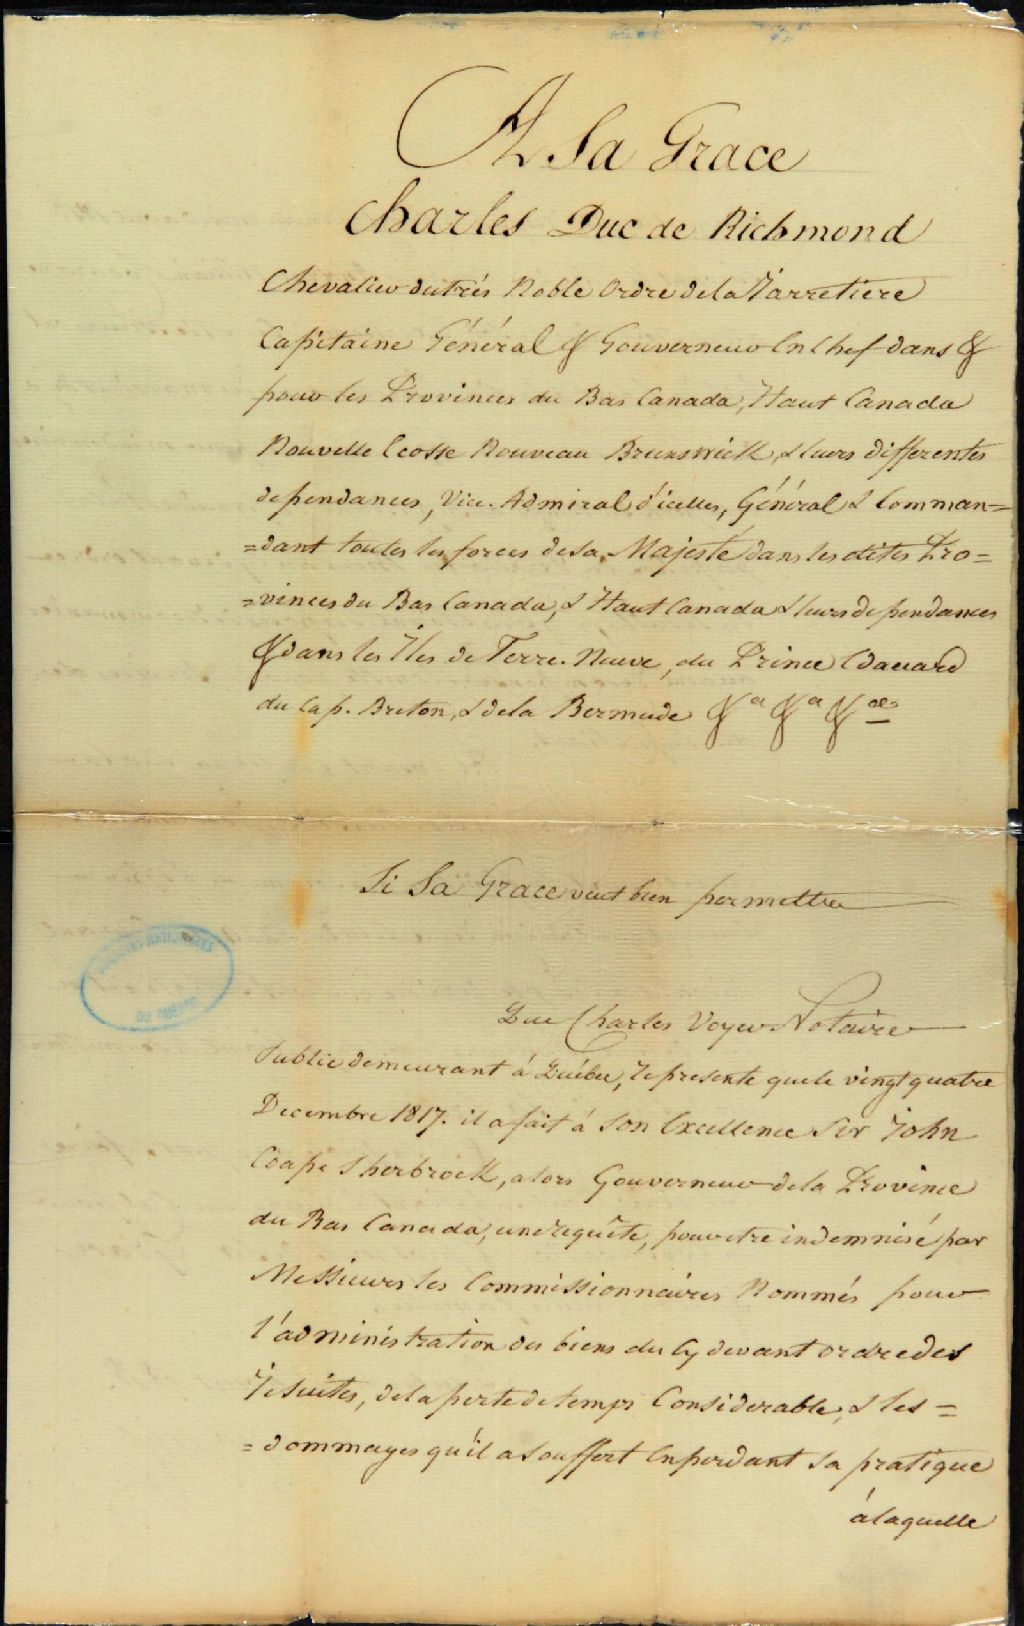 A Sa Grace
Charles Duc de Richmond
Chevalier du très Noble Ordre de la Jarretiere
Capitaine Général & Gouverneur En Chef dans &
pour les Provinces du Bas Canada, Haut Canada
Nouvelle Ecosse Nouveau Brunswick, & leurs differentes
dependances, Vice. Admiral d'icelles, Général & Comman=
=dant toutes les forces de sa Majesté dans les dites Pro=
=vinces du Bas Canada, & Haut Canada & leurs dependances
& dans les Îles de Terre. Neuve, du Prince Edouard
du Cap. Breton, & de la Bermude &a &a &ca
Si Sa Grace veut bien permettre
Que Charles Voyer Notaire
Public demeurant á Québec, represente que le vingt quatre
Decembre 1817. il a fait á Son Excellence Sir John
Coape Sherbrook, alors Gouverneur de la Province
du Bas Canada, une requête, pour etre indemnisé par
Messieurs les Commissionnaires Nommés pour
l'administration des biens du Cy devant ordre des
Jesuites, de la perte de temps Considerable, & les =
= dommages qu'il a souffert En perdant sa pratique
á laquelle
ARCHIVES NATIONALES
DU QUEBEC